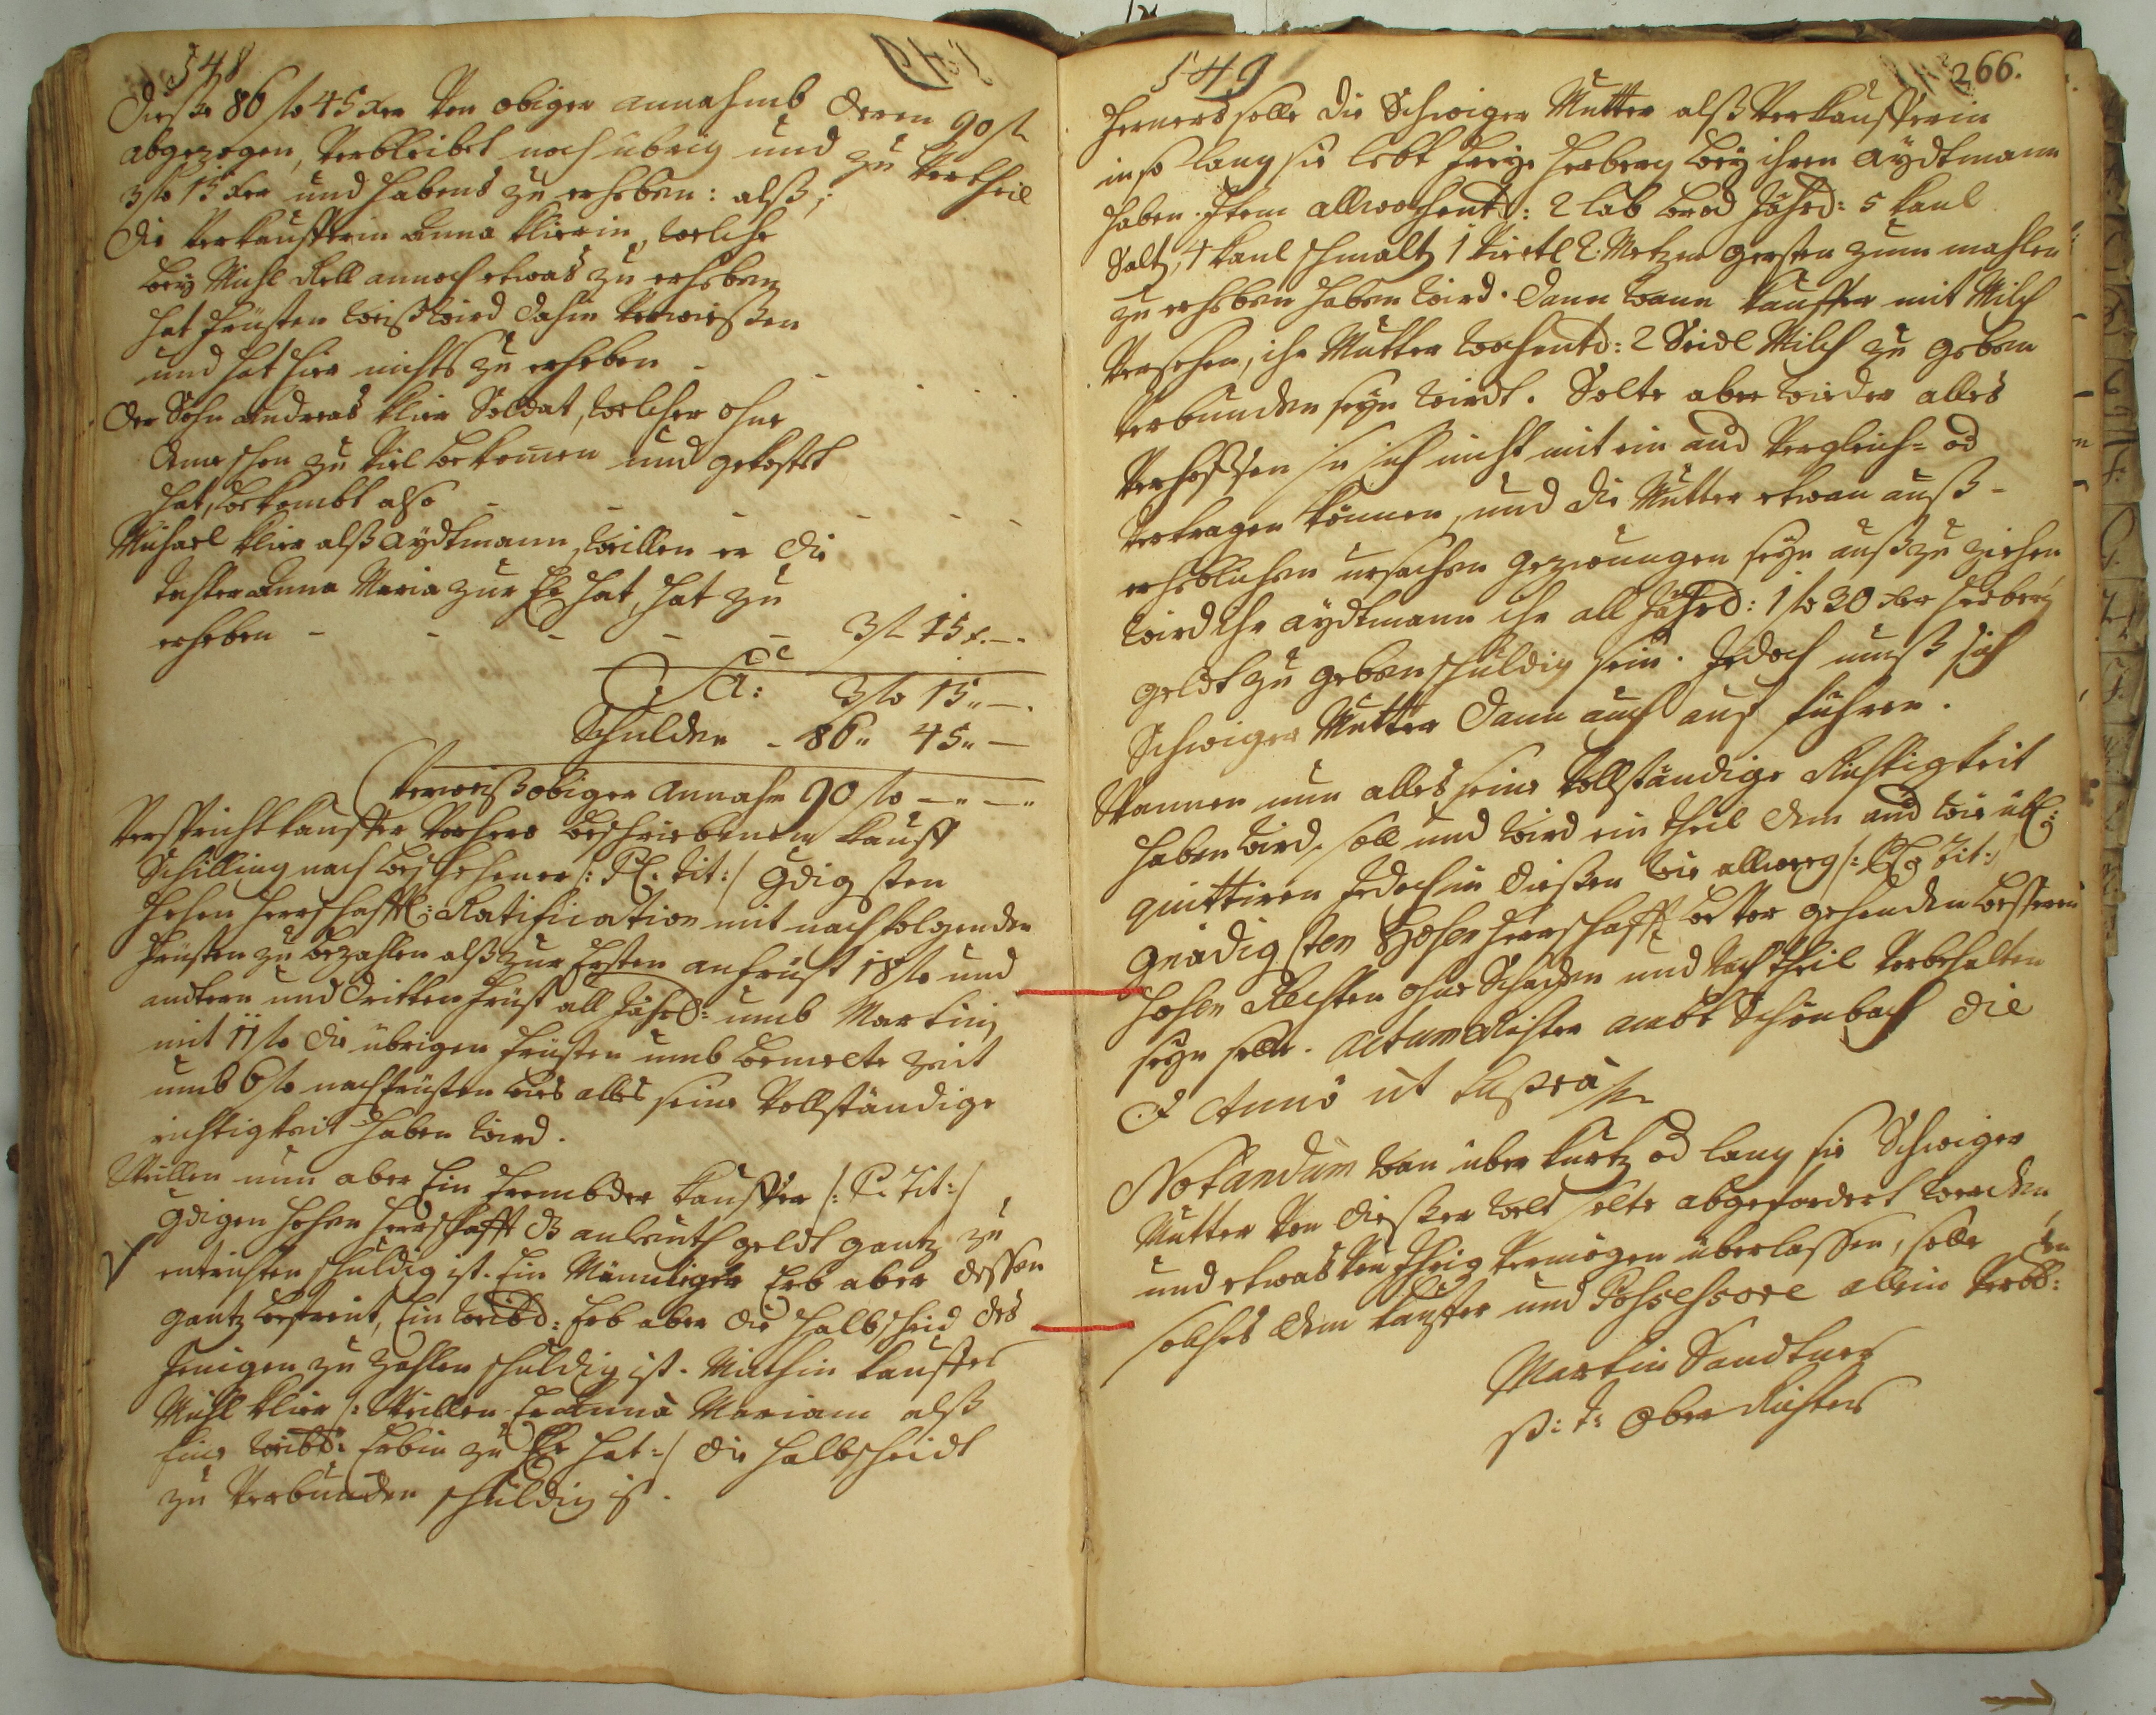 548
Dieße 86 fl 45 xer von obiger annahmb deren 90 fl
abgezogen, verbleibet noch übrig und zu vertheil
3 fl 15 xer und habens zu erheben: alß;
Die verkaufferin Anna Klierin, welche
bey Michl Kell annoch etwas zu erheben
hat fristen weiß wird dahin verwießen
und hat hier nichts zu erheben –
Der Sohn Andreas Klier Soldat, welcher ohne
deme schon zu viel bekomen und gekostet
hat, bekombt also – – – – – –
Michael Klier alß aydtmann, weillen er die
tochter Anna Maria zur Ehe hat, hat zu
erheben – – – – – 3 fl 15 x. –
Sa: 3 fl 15 " –
Schulden – 86 " 45 " –
verweiß obiger Annahm 90 fl – " – "
Verspricht kauffer vorhero beschriebenen kauff
Schilling nach beschehener /: Pl. tit: / Gdigsten
hohen Herrschafftl: Ratification mit nachfolgenden
fristen zu bezahlen alß zur Ersten anfrist 18 fl und
andtern und dritten frist all Jährl: umb Martini
mit 11 fl die übrigen fristen umb bemelte zeit
umb 6 fl nachfristen bies alles seine vollständige
richtigkeit haben wird.
Weillen nun aber Ein frembder kauffer /: P. Tit: /
Gdigen hohen Herrschafft dz anleith geldt gantz zu
entrichten schuldig ist. Ein Mänliger Erb aber dessen
gantz befreit, Ein weibl: Erb aber die halbscheid des
Jenigen zu zahlen schuldig ist. Mithin kauffer
Michl Klier /: Weillen Er Anna Mariam alß
Eine weibl: Erbin zu Ehe hat: / die halbscheidt
zu verbunden schuldig ist.
549
266.
Ferners solle die Schwiger Mutter alß verkaufferin
in so lang sie lebt freye herberg bey ihren aydtmann
haben. Item allwochentl: 2 lab brod Jährl: 5 kanl
Saltz, 4 kanl schmaltz 1 viertl 2: Metzen gersten zum mahlen
zu erheben haben wird. Dann wann kauffer mit Milch
versehen, ihr Mutter wochentl: 2 Seidl Milch zu geben
verbunden seyn wirdt. Solte aber wieder alles
verhoffen sie sich nicht mit ein and vergleich= od
vertragen können, und die Mutter etwan auß-
erheblichen ursachen gezwungen seyn außzu ziehen,
wird ihr aydtmann ihr all Jährl: 1 fl 30 xer herberg
geldt zu geben schuldig sein. Jedoch muß sich
Schwiger Mutter dann auch auf führen.
Wannen nun alles seine vollständige Richtigkeit
haben wird, soll und wird ein theil dem and wie übl:
quittiren Jedoch in dießen wie allweeg /: Pl: Tit: /
Gnädigsten Hohen herrschafft bevor gehenden besseren
hohen Rechten ohne Schaden und Nachtheil vorbehalten
seyn solle. Actum Richter ambt Schönbach die
& Anno ut supra
Notandum wan über kurtz od lang sie Schwiger
Mutter von dießer welt solte abgefordert werden,
und etwas von Ihrig vermögen überlassen, solle
solches dem kauffer und Possessore allein verbl:
Martin Sandtner
p: t: Ober Richter